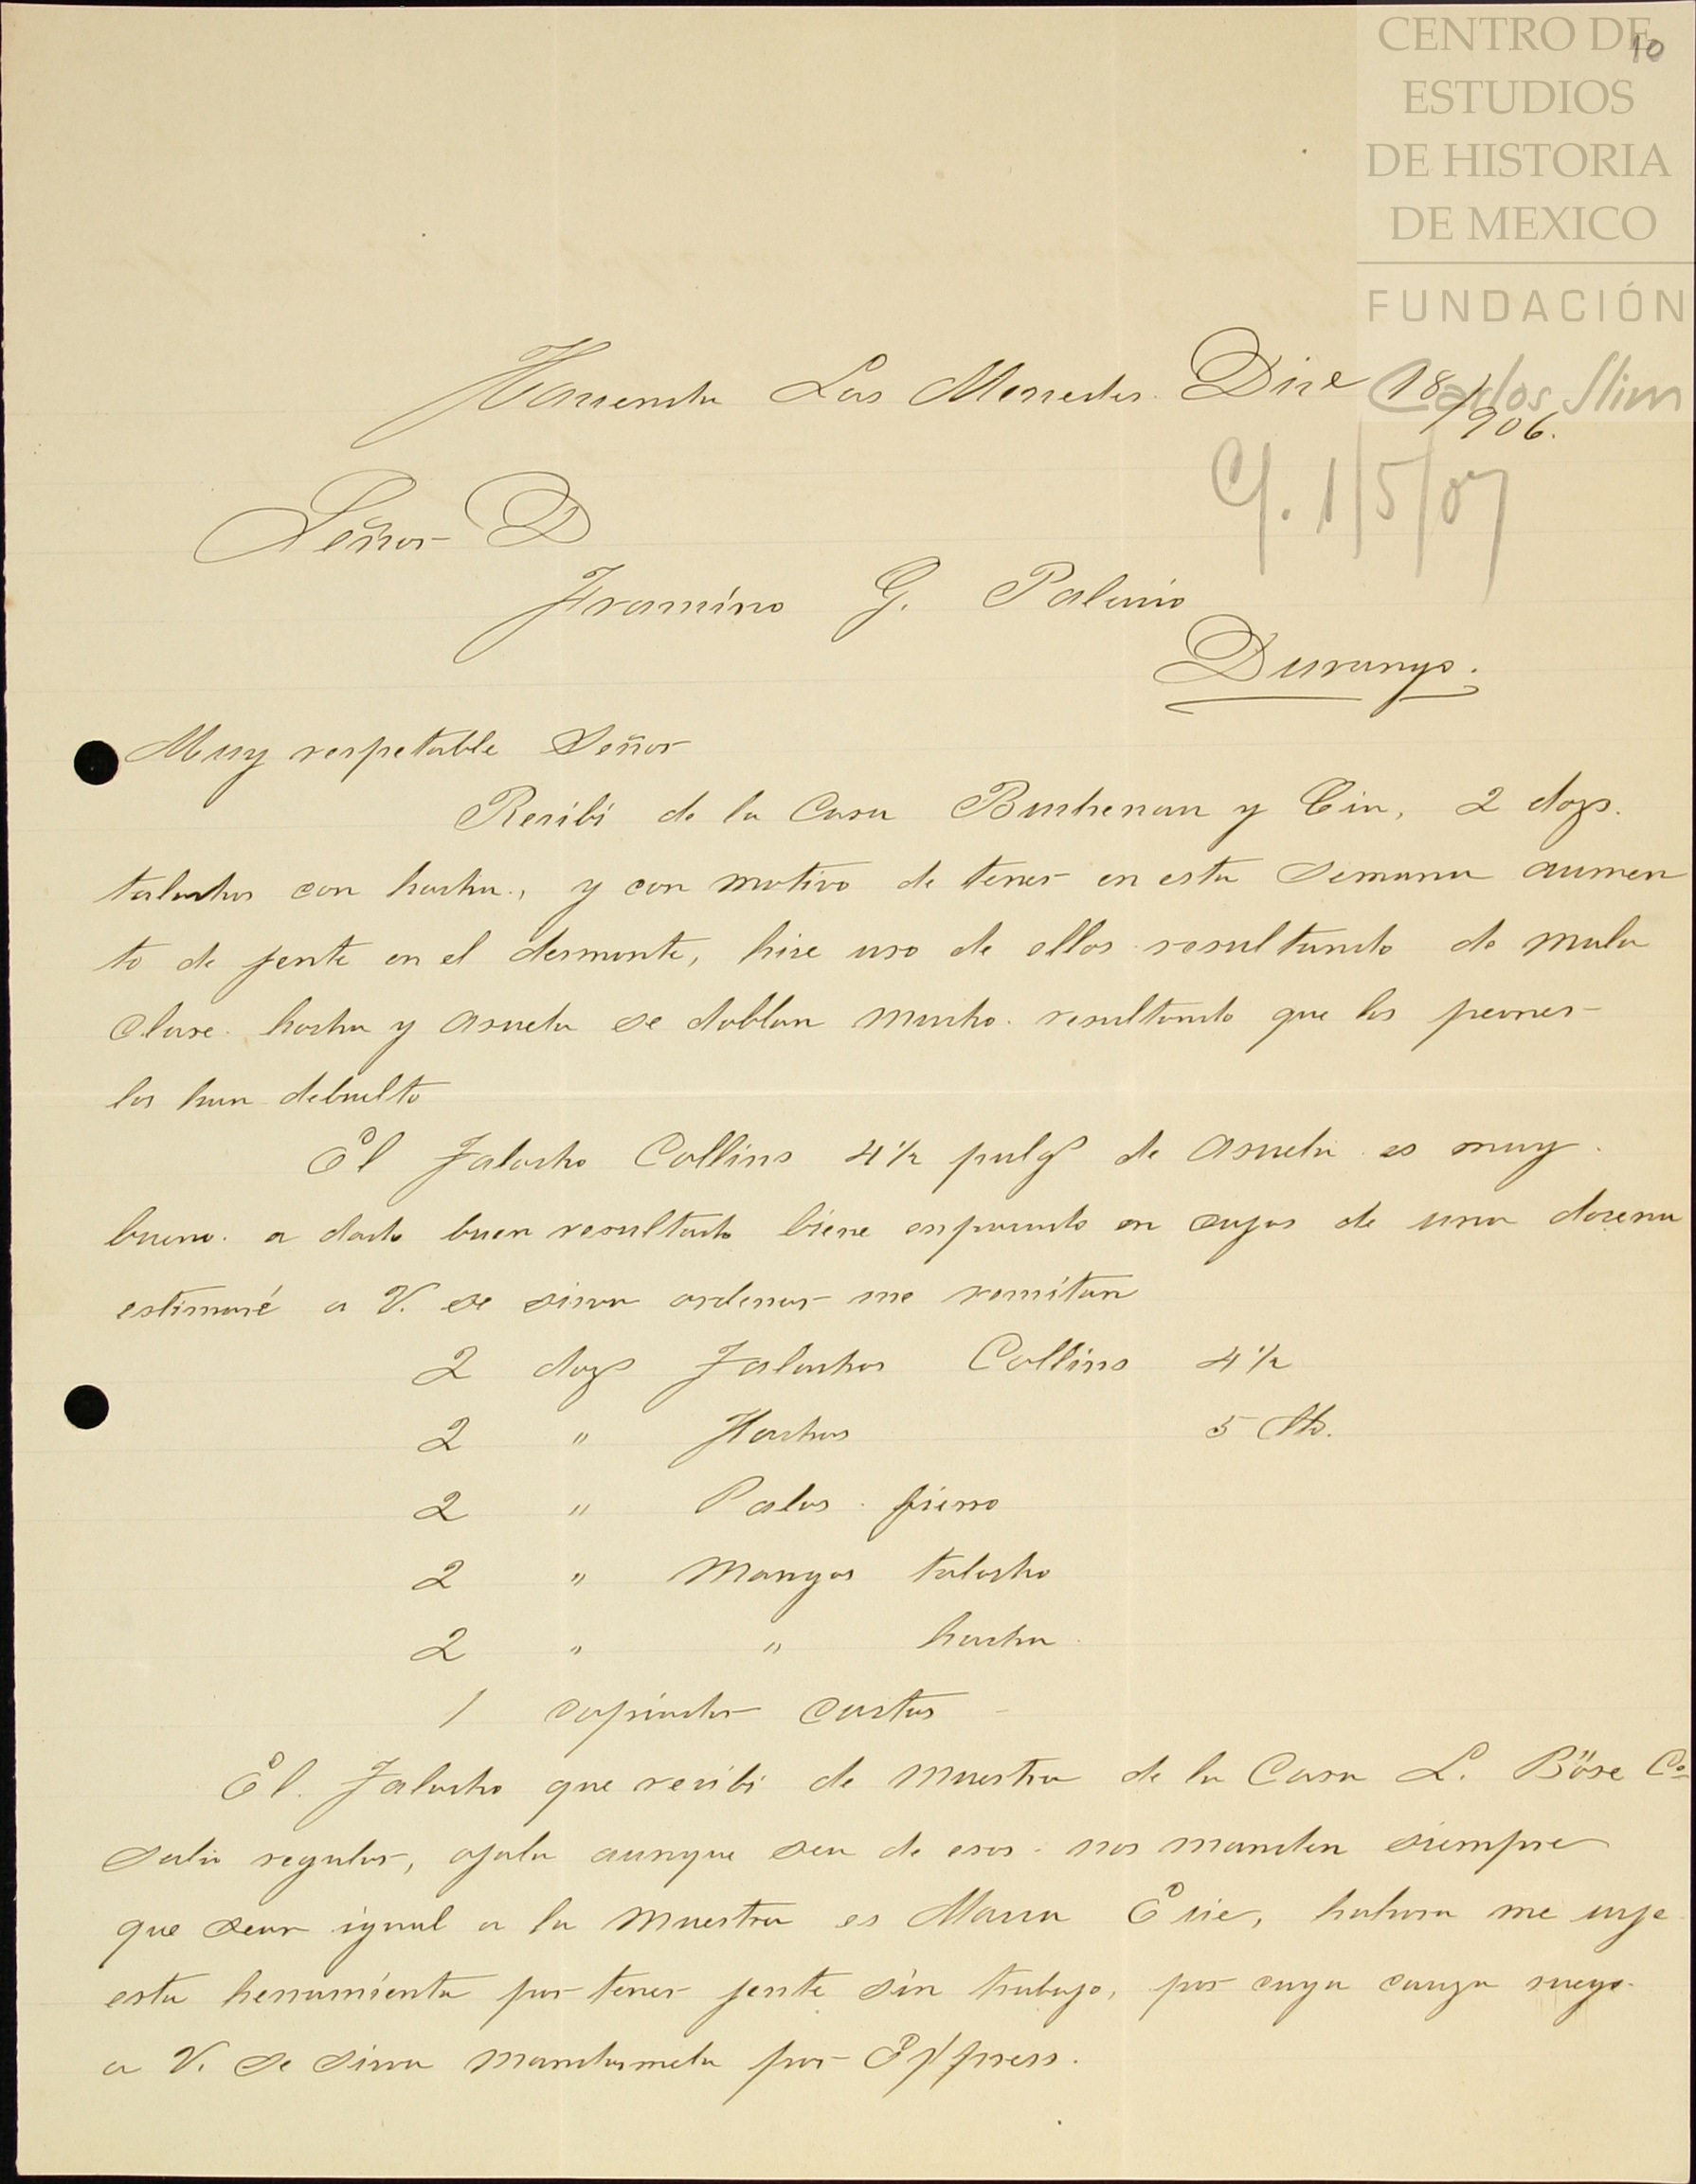 CENTRO DE
10
ESTUDIOS
DE HISTORIA
DE MEXICO
FUNDACIÓN
Carlos Slim
Hacienda Las Mercedes. Dice 18/906.
C/. 1/5/07
Señor D
Francisco G. Palacio
Durango.
Muy respetable Señor
Recibi de la Casa Buchenau y Cia, 2 dozs.
talachos con hacha., y con motivo de tener en esta Semana aumen
to de jente en el desmonte, hice uso de ellos resultando de mala
clase. hacha y asuela se doblan mucho. resultando que los peones
los han debuelto
El Talacho Collins 4½ pulgs de asuela es muy
bueno. a dado buen resultado biene enpacado en cajas de una docena
estimaré a V. se sirva ordenar me remitan
2 dozs Talachos Collins 4½
2 " Hachas 5 lbs.
2 " Palas fierro
2 " Mangos talacho
2 " " hacha.
1 copiador cartas
El Talacho que recibi de muestra de la Casa L. Böse Co
salio regular, ojala aunque sea de esos. nos manden siempre
que sean igual a la muestra es Marca, hahora me urje
esta herramienta por tener jente sin trabajo, por cuya cauza ruego
a V. se sirva mandarmela por Express.